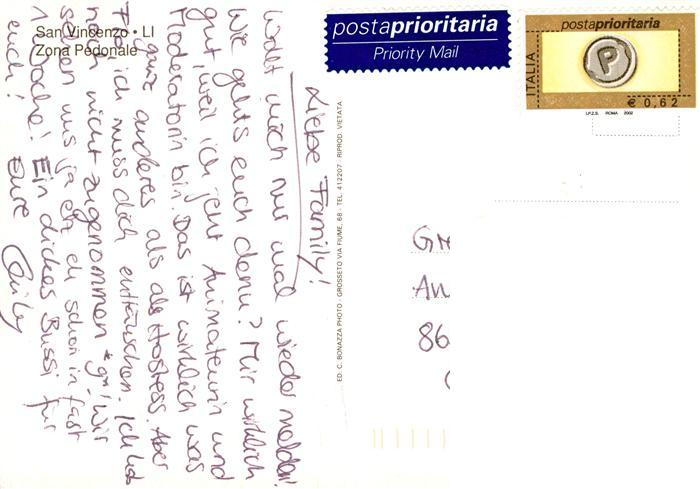 San Vincenzo • LI
Zona Pedonale
Liebe Family!
Wollt mich nur mal wieder melden!
Wie gehts euch denn? Mir wirklich
gut, weil ich jetzt Animateurin und
Moderatorin bin. Das ist wirklich was
ganz anderes als als Hostess. Aber
ich muss dich enttäuschen. Ich hab
noch nicht zugenommen *gr*! Wir
sehen uns ja eh schon in fast
1 Woche! Ein dickes Bussi für
euch! Eure
ED. C. BONAZZA PHOTO - GROSSETO VIA FIUME, 68 - TEL. 412207 - RIPROD. VIETATA
postaprioritaria
Priority Mail
postaprioritaria
ITALIA
P
€ 0,62
I.P.Z.S. ROMA 2002
An
86